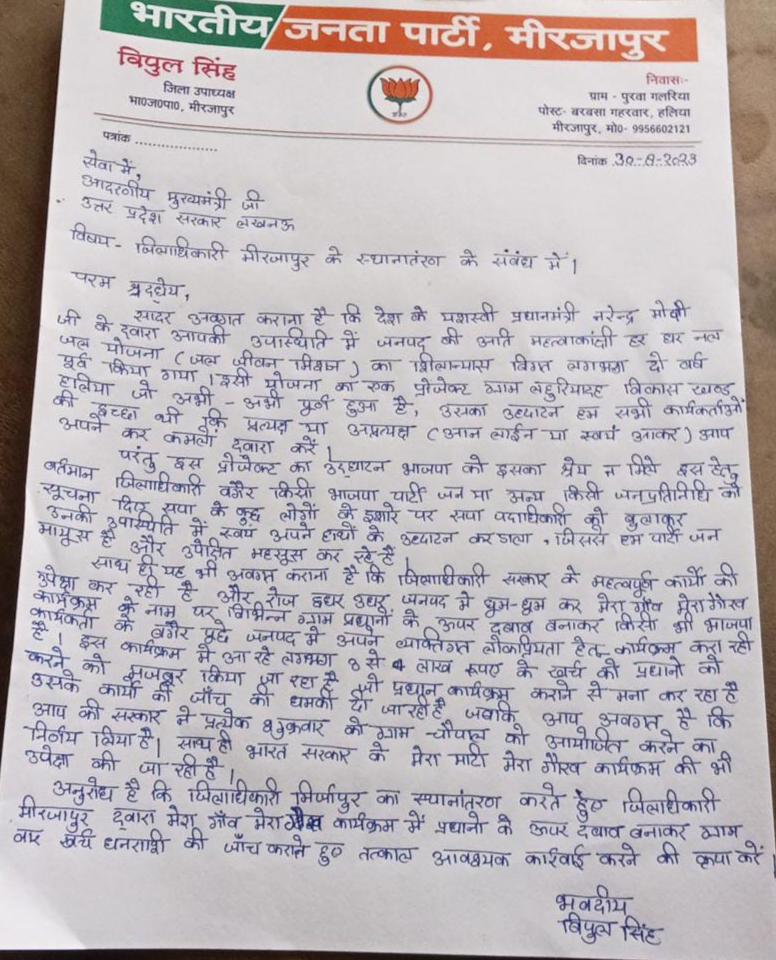 भारतीय जनता पार्टी, मीरजापुर
विपुल सिंह
जिला उपाध्यक्ष
भा0ज0पा0, मीरजापुर
निवासः-
ग्राम - पुरवा गलरिया
पोस्ट- बरबसा गहरवार, हलिया
मीरजापुर, मो0- 9956602121
पत्रांक ..................
दिनांक 30-8-2023
सेवा में,
आदरणीय मुख्यमंत्री जी
उत्तर प्रदेश सरकार लखनऊ
विषय - जिलाधिकारी मीरजापुर के स्थानातंरण के संबंध में।
परम श्रद्धेय,
सादर अवगत कराना है कि देश के यशस्वी प्रधानमंत्री नरेन्द्र मोदी
जी के द्वारा आपकी उपस्थिति में जनपद की अति महत्वाकांक्षी हर घर नल
जल योजना (जल जीवन मिशन) का शिलान्यास विगत लगभग दो वर्ष
पूर्व किया गया। इसी योजना का एक प्रोजेक्ट ग्राम लहुरियादह विकास खण्ड
हलिया जो अभी - अभी पूर्ण हुआ है, उसका उद्घाटन हम सभी कार्यकर्ताओं
की इच्छा थी कि प्रत्यक्ष या अप्रत्यक्ष (आन लाईन या स्वयं आकर) आप
अपने कर कमलों द्वारा करें।
परंतु इस प्रोजेक्ट का उद्घाटन भाजपा को इसका श्रेय न मिले इस हेतु
वर्तमान जिलाधिकारी वगैर किसी भाजपा पार्टी जन या अन्य किसी जनप्रतिनिधि को
सूचना दिए सपा के कुछ लोगों के इशारे पर सपा पदाधिकारी को बुलाकर
उनकी उपस्थिति में स्वयं अपने हाथों के उद्घाटन कर डाला, जिससे हम पार्टी जन
मायूस है और उपेक्षित महसूस कर रहे है।
साथ ही यह भी अवगत कराना है कि जिलाधिकारी सरकार के महत्वपूर्ण कार्यो की
उपेक्षा कर रही है और रोज इधर उधर जनपद में घुम-घुम कर मेरा गाँव मेरा गौरव
कार्यक्रम के नाम पर विभिन्न ग्राम प्रधानों के ऊपर दबाव बनाकर किसी भी भाजपा
कार्यकर्ता के वगैर पूछे जनपद में अपने व्यक्तिगत लोकप्रियता हेतु कार्यक्रम करा रही
है। इस कार्यक्रम में आ रहे लगभग 3 से 4 लाख रूपए के खर्च को प्रधानो को
करने को मजबूर किया जा रहा है जो प्रधान कार्यक्रम कराने से मना कर रहा है
उसके कार्यो की जाँच की धमकी दी जा रही है जबकि आप अवगत है कि
आप की सरकार ने प्रत्येक शुक्रवार को ग्राम -चौपाल को आयोजित करने का
निर्णय लिया है। साथ ही भारत सरकार के मेरा माटी मेरा गौरव कार्यक्रम की भी
उपेक्षा की जा रही है।
अनुरोध है कि जिलाधिकारी मिर्जापुर का स्थानांतरण करते हुए जिलाधिकारी
मीरजापुर द्वारा मेरा गाँव मेरा गौरव कार्यक्रम में प्रधानो के ऊपर दबाव बनाकर ग्राम
वार खर्च धनराशी की जाँच कराते हुए तत्काल आवश्यक कार्रवाई करने की कृपा करें
भवदीय
विपुल सिंह